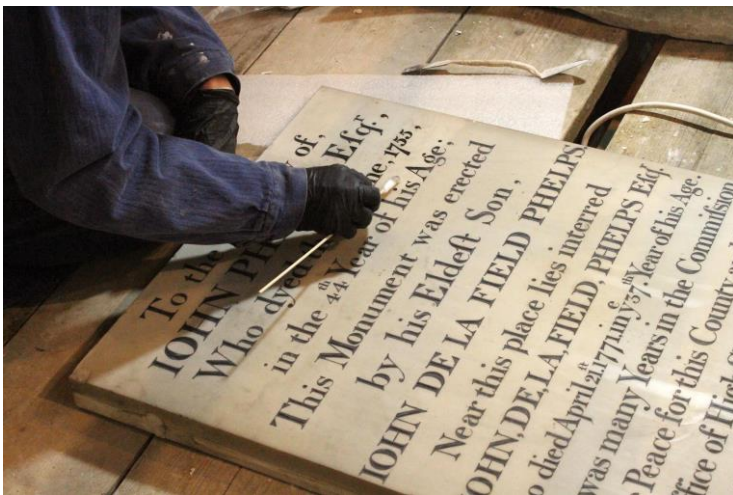 To the of,
IOHN PH Eſqr.,
Who dyed the ne, 1755,
in the 44th Year of his Age;
This Monument was erected
by his Eldeſt Son,
IOHN DE LA FIELD PHELPS.
Near this place lies interred
OHN, DE LA, FIELD, PHELPS Eſq.
o died April 21.ſt 1771 in ye 37.th Year of his Age.
was many Years in the Commiſsion
Peace for this County and
fice of High